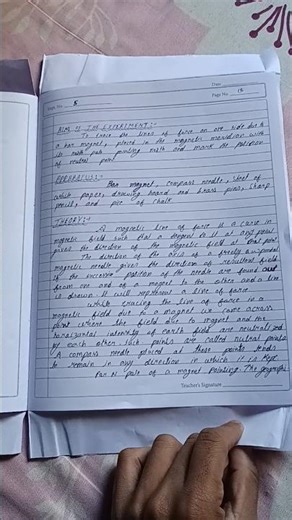 Date
Expt. No. 8
Page No. 15
AIM OF THE EXPERIMENT:-
To trace the lines of force on one side due to
a bar magnet, placed in the magnetic meridian with
its north pole pointing north and mark the position
of neutral point.
APPARATUS:-
Bar magnet, compass needle, sheet of
white paper, drawing board and brass pins, sharp
pencil, and pice of chalk.
THEORY:-
A magnetic line of force is a curve in
magnetic field such that a tangent to it at any point
gives the direction of the magnetic field at that point.
The direction of the axis of a freely suspended
magnetic needle gives the direction of resultant field
if the successive position of the needle are found out
from one end of a magnet to the other and a line
is drawn. It will represent a line of force
while tracing the line of force in a
magnetic field due to a magnet we come across
point where the field due to magnet and the
horizontal intensity of earth field are neutralised
by each other. Such points are called neutral points
A compass needle placed at these points tends
to remain in any direction in which it is kept
For N pole of a magnet pointing the geographic
Teacher's Signature